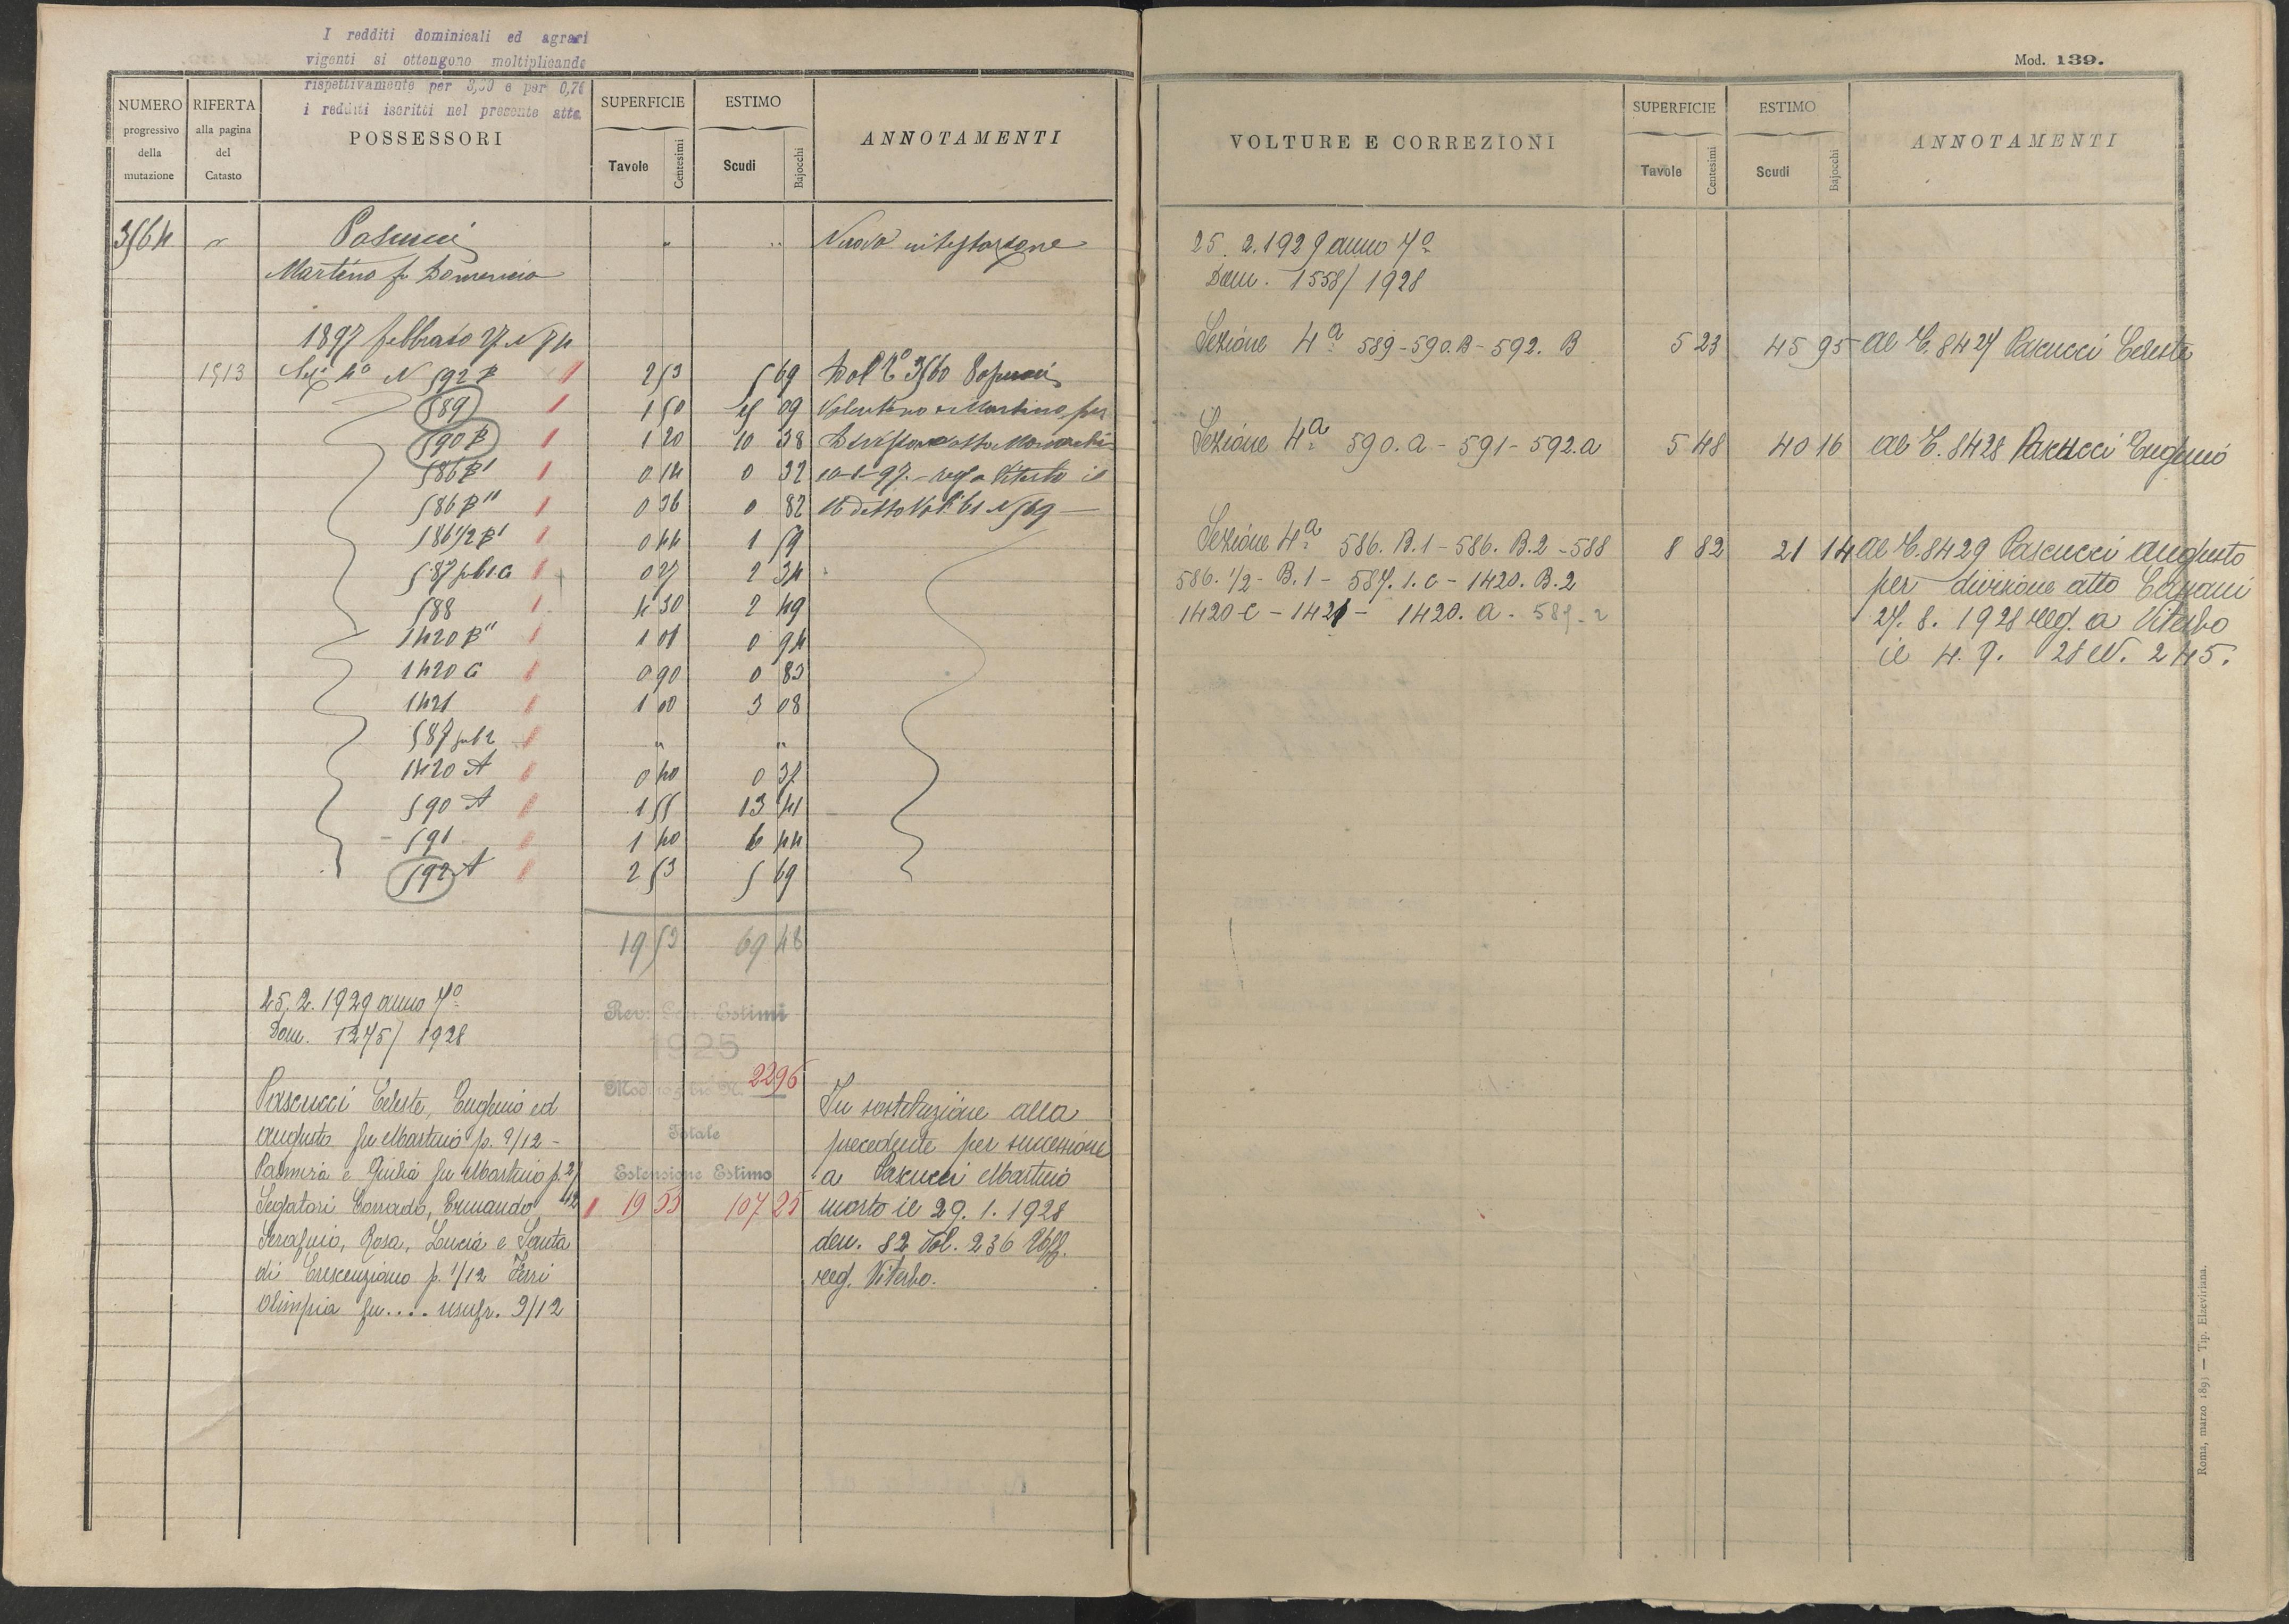 I redditi dominicali ed agrari
vigenti si ottengono moltiplicando
rispettivamente per e per 0,76
i redditi iscritti nel presente atto.
NUMERO progressivo della mutazione
RIFERTA alla pagina del Catasto
POSSESSORI
SUPERFICIE Tavole Centesimi
ESTIMO Scudi Bajocchi
ANNOTAMENTI
3564 Pascucci Nuova intestazione
Martino fu Domenico
1897 febbraio 27 N
1513 Sez. 4a N 592 B 2 53 5 69 Dal 3560 Pascucci
589 1 50 09 Valentino e Martino per
590 B 1 20 10 38 divisione atto
586 B' 0 14 0 32 97 reg. a Viterbo il
586 B'' 0 36 0 82 detto Vol. 61 N 569
586 1/2 B' 0 44 1 59
587 sub 1 C 0 27 2 34
588 4 30 2 49
1420 B'' 1 01 0 94
1420 C 0 90 0 83
1421 1 00 3 08
587 sub 2 " "
1420 A 0 40 0 37
590 A 1 55 13 41
591 1 40 6 44
592 A 2 53 5 69
19 53 69 48
25. 2. 1929 anno 7º
Dom. 1275/1928
Rev. Gen. Estimi
1925
Mod. foglio N. 2296
Totale
Estensione Estimo
19 53 107 25
Pascucci Celeste, Eugenio ed
Augusto fu Martino p. 9/12 -
Palmira e Giulia fu Martino p. 2/12
Segatori Corrado, Ermando
Serafino, Rosa, Lucia e Santa
di Crescenziano p. 1/12 Ferri
Olimpia fu .... usufr. 3/12
In sostituzione alla
precedente per successione
a Pascucci Martino
morto il 29. 1. 1928
den. 82 Vol. 236 Uff.
reg. Viterbo.
Mod. 139.
VOLTURE E CORREZIONI
SUPERFICIE Tavole Centesimi
ESTIMO Scudi Bajocchi
ANNOTAMENTI
25. 2. 1929 anno 7º
Dom. 1558/1928
Sezione 4ª 589 - 590. B - 592. B 5 23 45 95 al C. 8427 Pascucci Celeste
Sezione 4ª 590. A - 591 - 592. A 5 48 40 16 al C. 8428 Pascucci Eugenio
Sezione 4ª 586. B. 1 - 586. B. 2 - 588 8 82 21 14 al C. 8429 Pascucci Augusto
586. 1/2 - B. 1 - 587. 1. C - 1420. B. 2 per divisione atto
1420 C - 1421 - 1420. A - 587 - 2 27. 8. 1928 reg. a Viterbo
il 4. 9. 28 N. 245.
Roma, marzo 189 — Tip. Elzeviriana.